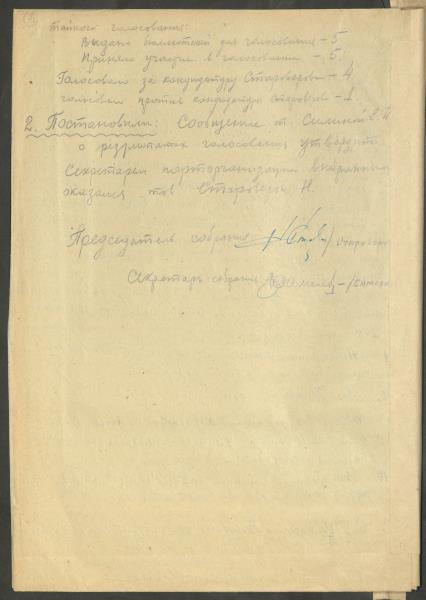 тайного голосования:
Выдано бюллетеней для голосования – 5
Приняло участие в голосовании – 5.
Голосовали за кандидатуру Староверова – 4
голосовали против кандидатуры Староверова – 1.
2. Постановили: Сообщение т.
о результатах голосования утвердить
Секретарем парторганизации избранным
оказался тов Староверов Н.
Председатель собрания
Секретарь собрания